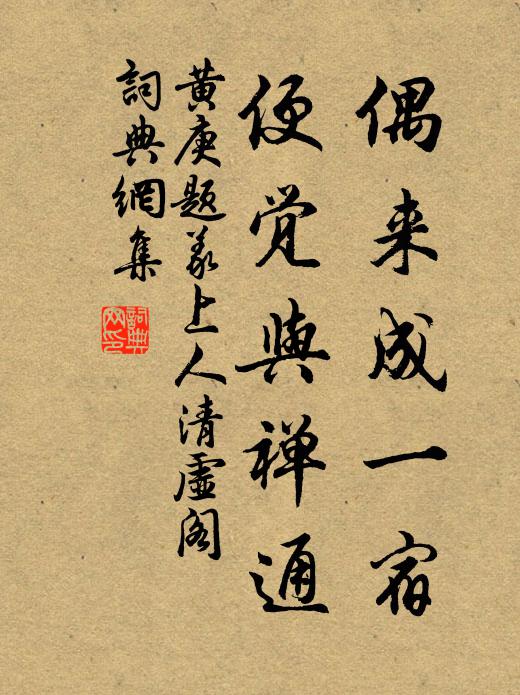 偶来成一宿
便觉與禅通
黄庚题义上人清虚阁
詞典網集
詞典网印